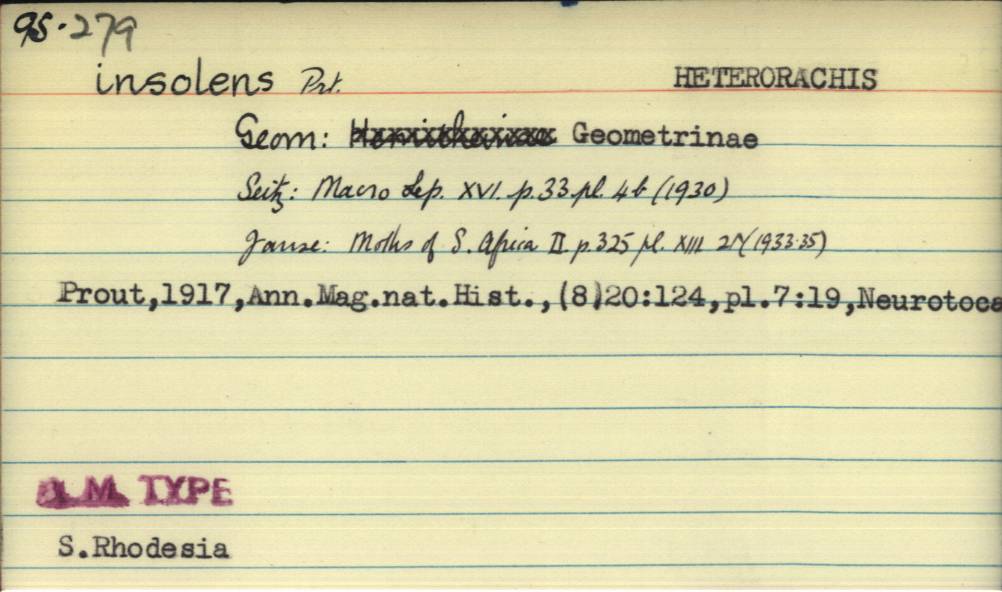 95.279
insolens Prt. HETERORACHIS
Geom: Hemitheinae Geometrinae
Seitz: Macro Lep. XVI. p.33. pl. 4b (1930)
Janse: Moths of S. Africa II p.325 pl. XIII (1933-35)
Prout,1917,Ann.Mag.nat.Hist.,(8)20:124,pl.7:19,Neurotoca
B.M. TYPE
S.Rhodesia